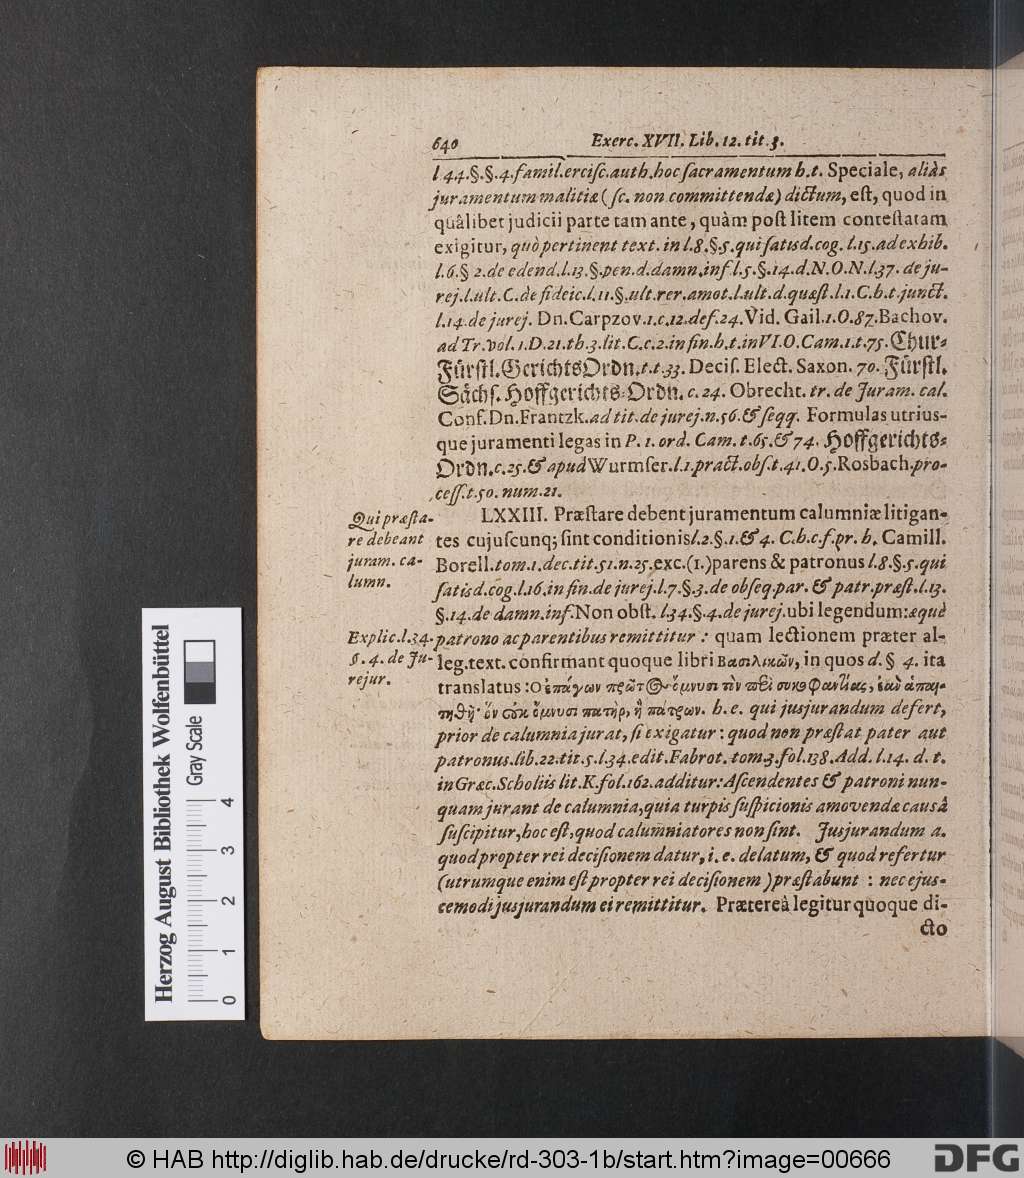 640 Exerc. XVII. Lib. 12. tit. 3.
l 44.§.§.4.famil.ercisc.auth.hoc sacramentum h.t. Speciale, aliàs
juramentum malitiæ (sc. non committendæ) dictum, est, quod in
quâlibet judicii parte tam ante, quàm post litem contestatam
exigitur, quò pertinent text. in l.8.§.5. qui satisd.cog. l.15. ad exhib.
l.6.§ 2.de edend.l.13.§.pen.d.damn.inf l.5.§.14.d.N.O.N.l.37. de ju-
rej.l.ult.C.de fideic.l.11.§.ult.rer.amot.l.ult.d.quæst.l.1.C.h.t.junct.
l.14.de jurej. Dn. Carpzov.1.c.12.def.24.Vid. Gail.1.O.87.Bachov.
ad Tr. vol.1.D.21.th.3.lit.C.c.2.in fin.h.t.in VI.O.Cam.1.t.75. Chur-
Fürstl. GerichtsOrdn.t.t.33. Decis. Elect. Saxon. 70. Fürstl.
Sächs. Hoffgerichts-Ordn. c.24. Obrecht. tr. de Juram. cal.
Conf. Dn. Frantzk. ad tit. de jurej.n.56.& seqq. Formulas utrius-
que juramenti legas in P. 1. ord. Cam. t.65.& 74. Hoffgerichts-
Ordn.c.25.& apud Wurmser.l.1.pract.obs.t.41.O.5.Rosbach.pro-
cess.t.50. num.21.
Qui præsta-
re debeant
juram. ca-
lumn.
LXXIII. Præstare debent juramentum calumniæ litigan-
tes cujuscunq; sint conditionis l.2.§.1.& 4. C.h.c.f.pr. h. Camill.
Borell.tom.1.dec.tit.51.n.25.exc.(1.)parens & patronus l.8.§.5.qui
satisd.cog.l.16.in fin.de jurej.l.7.§.3.de obseq.par. & patr.præst.l.13.
§.14.de damn.inf.Non obst. l.34.§.4.de jurej.ubi legendum:æquè
Explic.l.34.
§. 4. de Ju-
rejur.
patrono ac parentibus remittitur: quam lectionem præter al-
leg.text. confirmant quoque libri Βασιλικῶν, in quos d.§ 4. ita
translatus: Ο ἐπάγων πρῶτ῀ ὄμνυσι τὸν περὶ συκοφαντίας, ἐὰν ἀπαι-
τηθῇ· ὃν οὐκ ὄμνυσι πατὴρ, ἢ πάτρων. h. e. qui jusjurandum defert,
prior de calumnia jurat, si exigatur: quod non præstat pater aut
patronus.lib.22.tit.5.l.34.edit.Fabrot.tom.3.fol.138.Add.l.14. d. t.
in Græc.Scholiis lit.K.fol.162.additur: Ascendentes & patroni nun-
quam jurant de calumnia, quia turpis suspicionis amovendæ causâ
suscipitur, hoc est, quod calumniatores non sint. Jusjurandum a.
quod propter rei decisionem datur, i. e. delatum, & quod refertur
(utrumque enim est propter rei decisionem) præstabunt: nec ejus-
cemodi jusjurandum ei remittitur. Prætereà legitur quoque di-
cto
Herzog August Bibliothek Wolfenbüttel
Gray Scale
0 1 2 3 4
© HAB http://diglib.hab.de/drucke/rd-303-1b/start.htm?image=00666
DFG